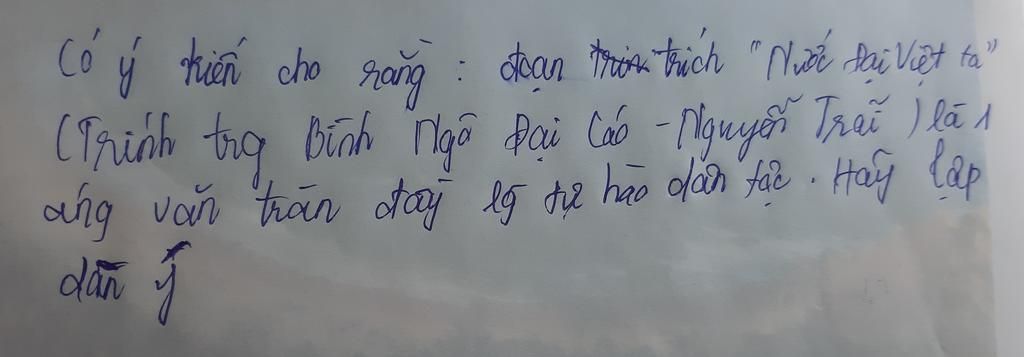 Có ý kiến cho rằng : đoạn trích "Nước Đại Việt ta"
(Trính trg Bình Ngô Đại Cáo - Nguyễn Trãi) là 1
áng văn tràn đầy lg tự hào dân tộc. Hãy lập
dàn ý